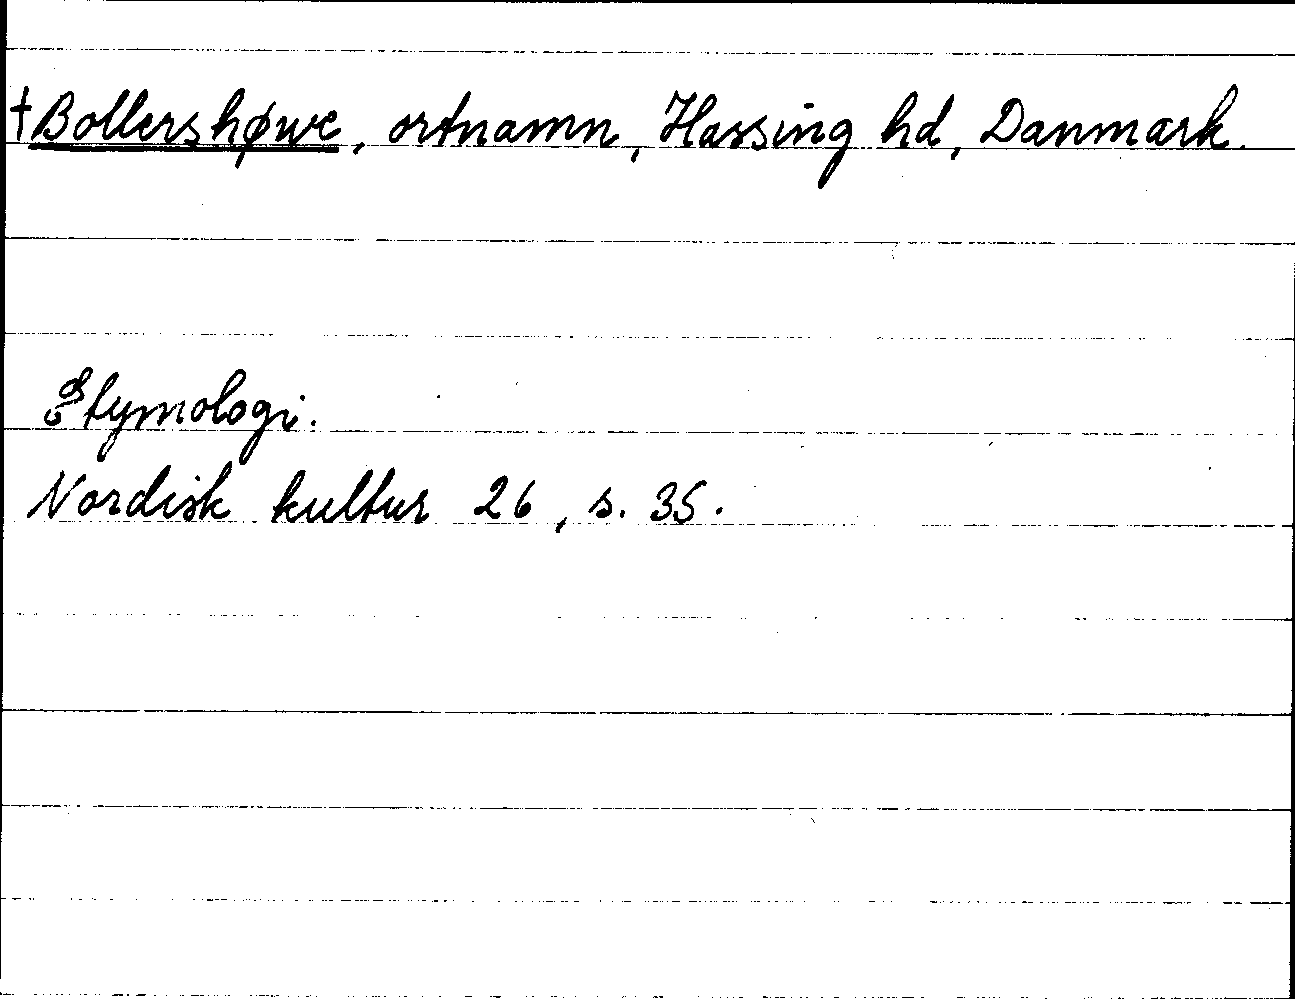 †Bollershøwe, ortnamn, Hassing hd, Danmark.
Etymologi.
Nordisk kultur 26, s. 35.